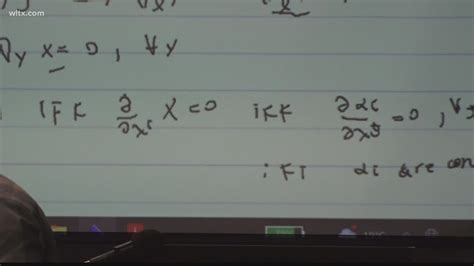 wltx.com
∇_Y X = 0, ∀Y
IFF ∂/∂x^i X = 0 iFF ∂αi/∂x^j = 0, ∀j
iFF αi are con